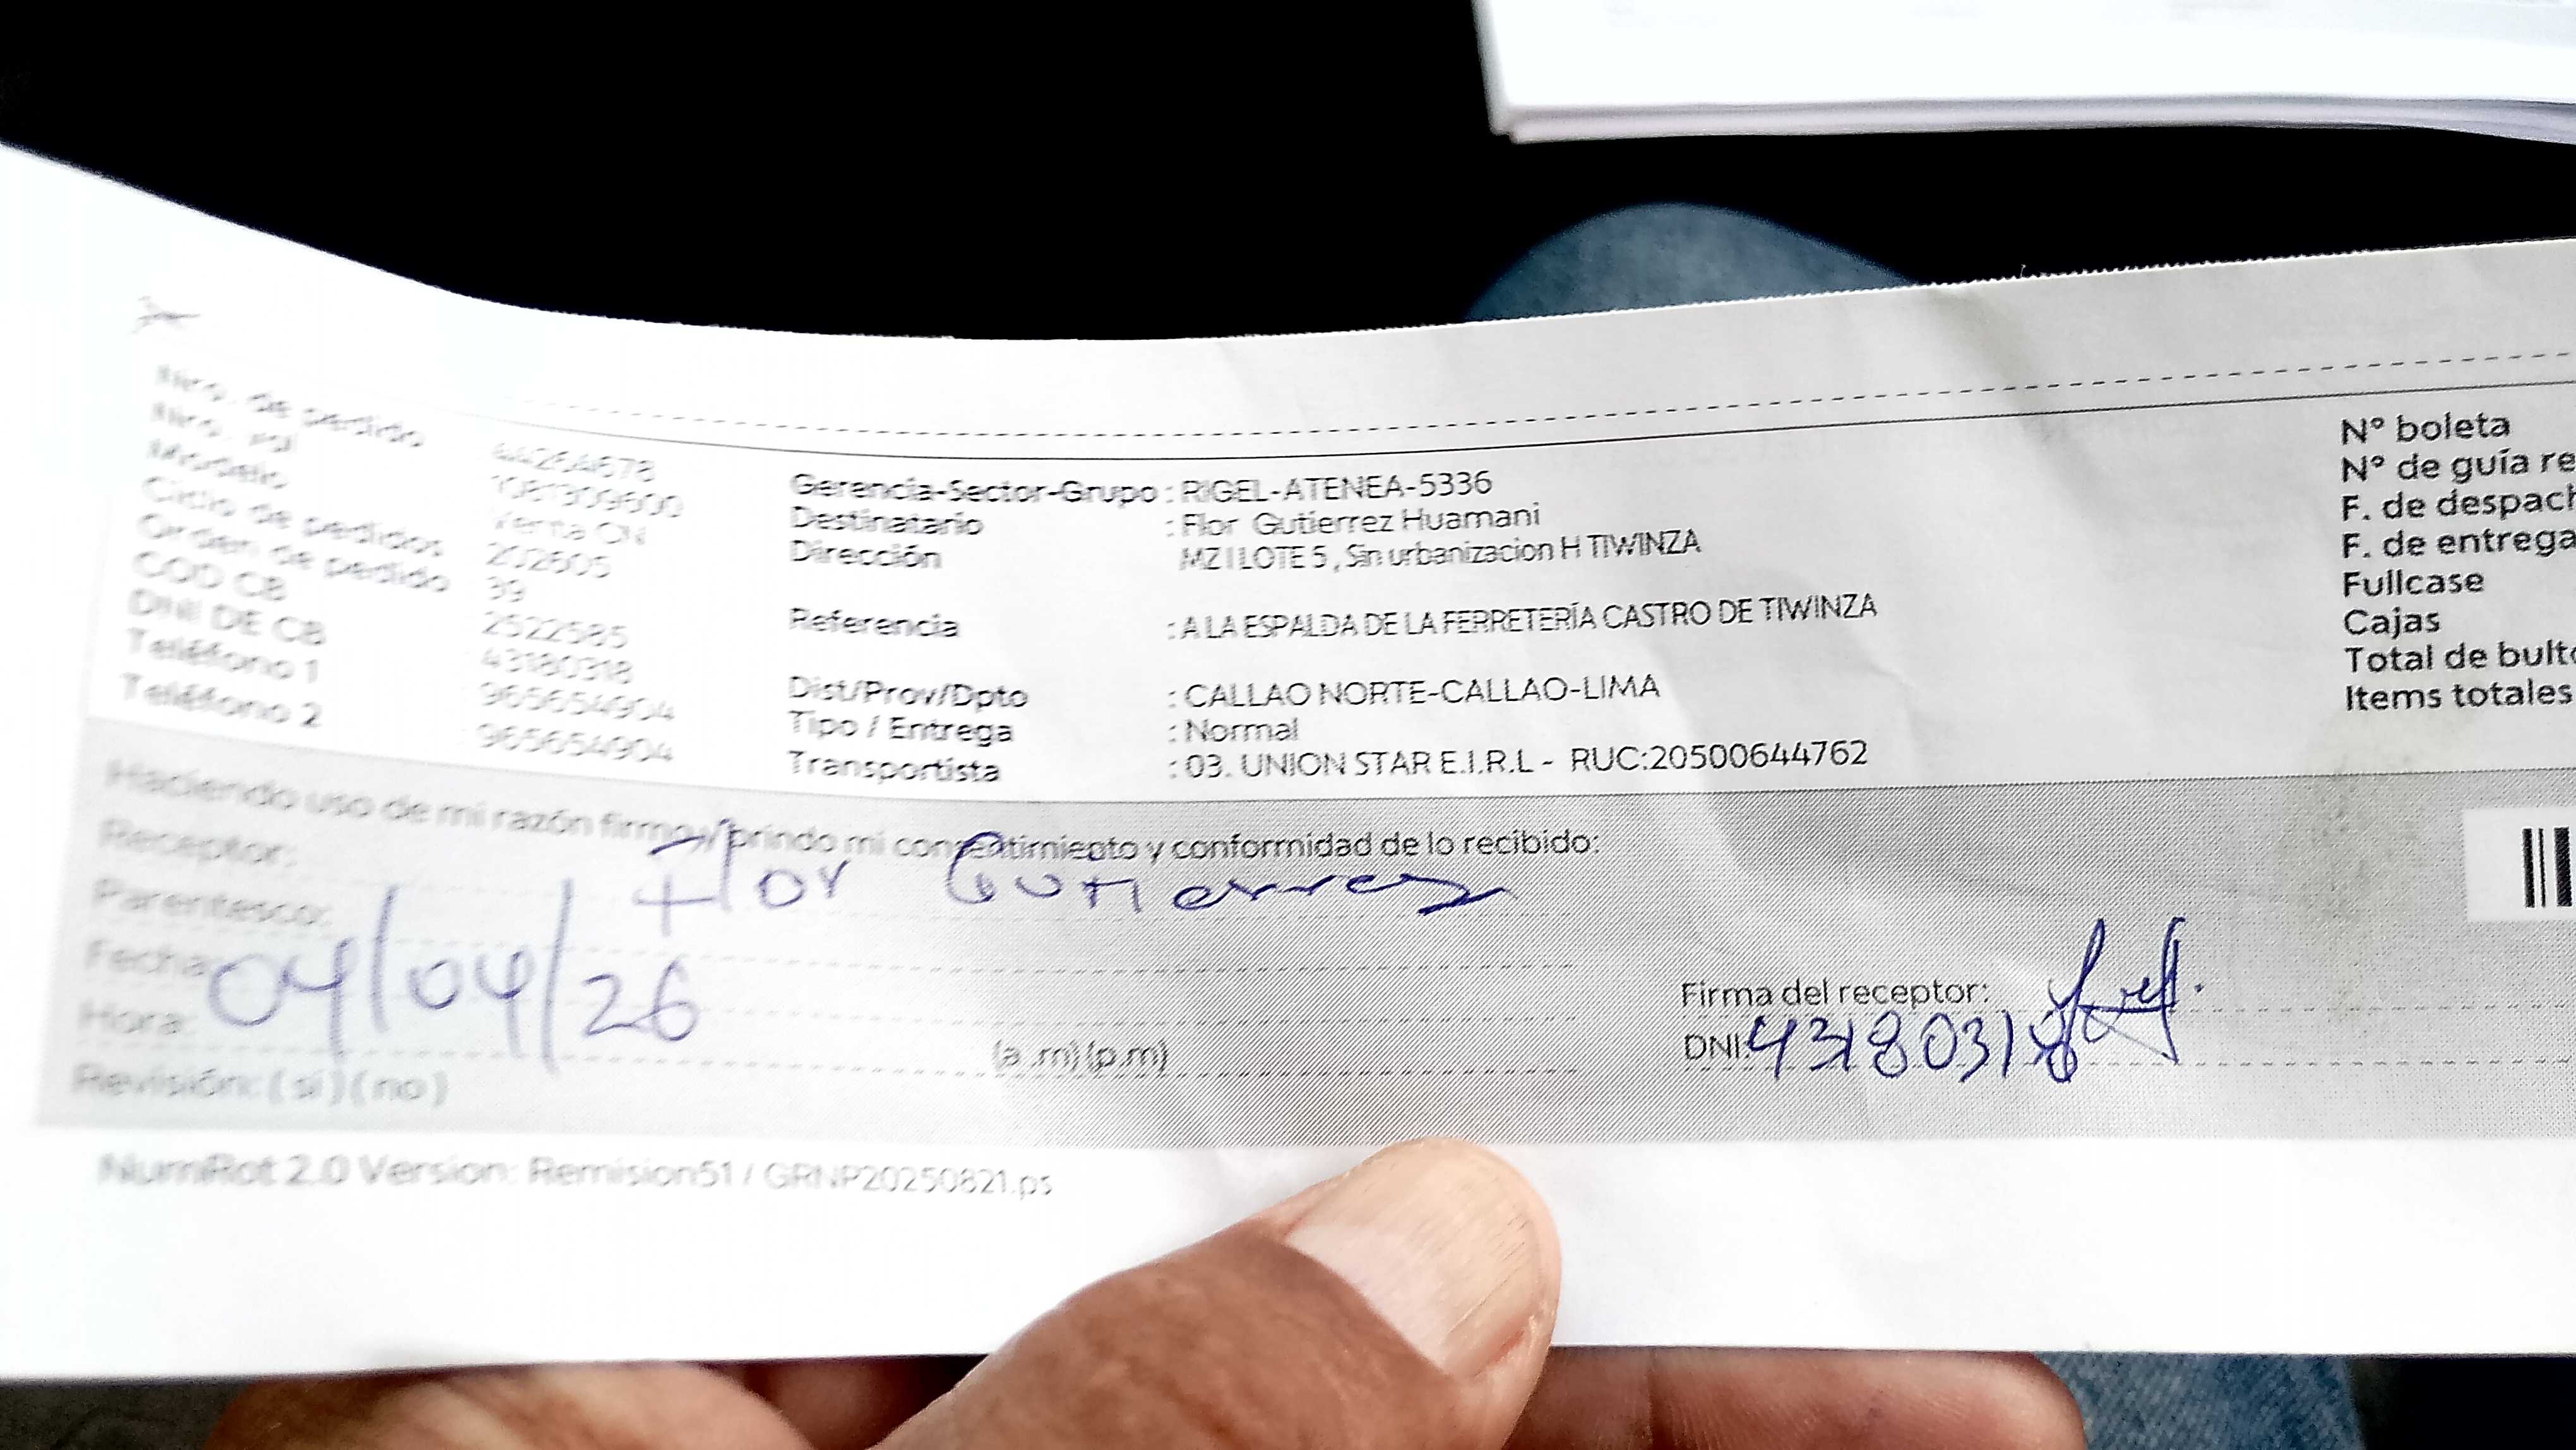 Nro. de pedido 44264678
Nro. 1081309600
Modelo Venta CN
Ciclo de pedidos 202605
Orden de pedido 39
COD CB 2522585
DNI DE CB 43180318
Teléfono 1 965654904
Teléfono 2 965654904
Gerencia-Sector-Grupo : RIGEL-ATENEA-5336
Destinatario : Flor Gutierrez Huamani
Dirección MZ I LOTE 5 , Sin urbanizacion H TIWINZA
Referencia : A LA ESPALDA DE LA FERRETERÍA CASTRO DE TIWINZA
Dist/Prov/Dpto : CALLAO NORTE-CALLAO-LIMA
Tipo / Entrega : Normal
Transportista : 03. UNION STAR E.I.R.L - RUC:20500644762
N° boleta
N° de guía re
F. de despach
F. de entrega
Fullcase
Cajas
Total de bulto
Items totales
Haciendo uso de mi razón firmo y brindo mi consentimiento y conformidad de lo recibido:
Receptor: Flor Gutierrez
Parentesco:
Fecha: 04/04/26
Hora: (a.m)(p.m)
Revisión: ( si ) ( no )
Firma del receptor:
DNI: 43180318
NumRot 2.0 Version: Remision51 / GRNP20250821.ps